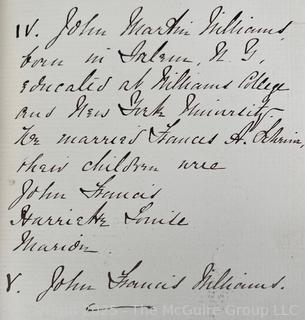 IV. John Martin Williams,
born in Salem, N.Y,
educated at Williams College
and New York University.
He married Frances A.
their children were
John Francis
Harriette Louise
Marion.
V. John Francis Williams.